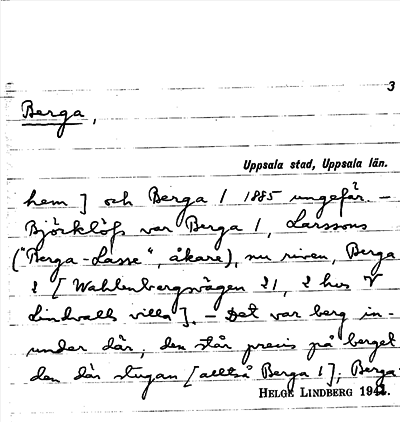 3
Berga,
Uppsala stad, Uppsala län.
hem] och Berga 1 1885 ungefär. -
Björklöfs var Berga 1, Larssons
("Berga-Lasse", åkare), nu riven, Berga
2 [Wahlenbergsvägen 21, 2 hus V
Lindvalls villa]. - Det var berg in-
under där, den står precis på berget
den där stugan [alltså Berga 1]; Berga-
HELGE LINDBERG 1942.